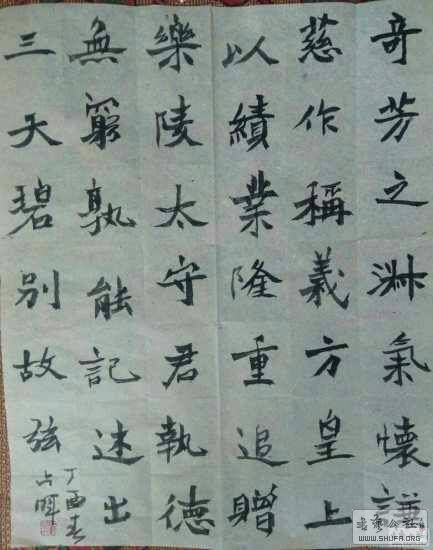 奇芳之淋氣懷謙
慈作稱義方皇上
以績業隆重追贈
樂陵太守君執德
無窮孰能記述出
三天碧別故弦
丁酉春
占暉
書藝公社
WWW.SHUFA.ORG